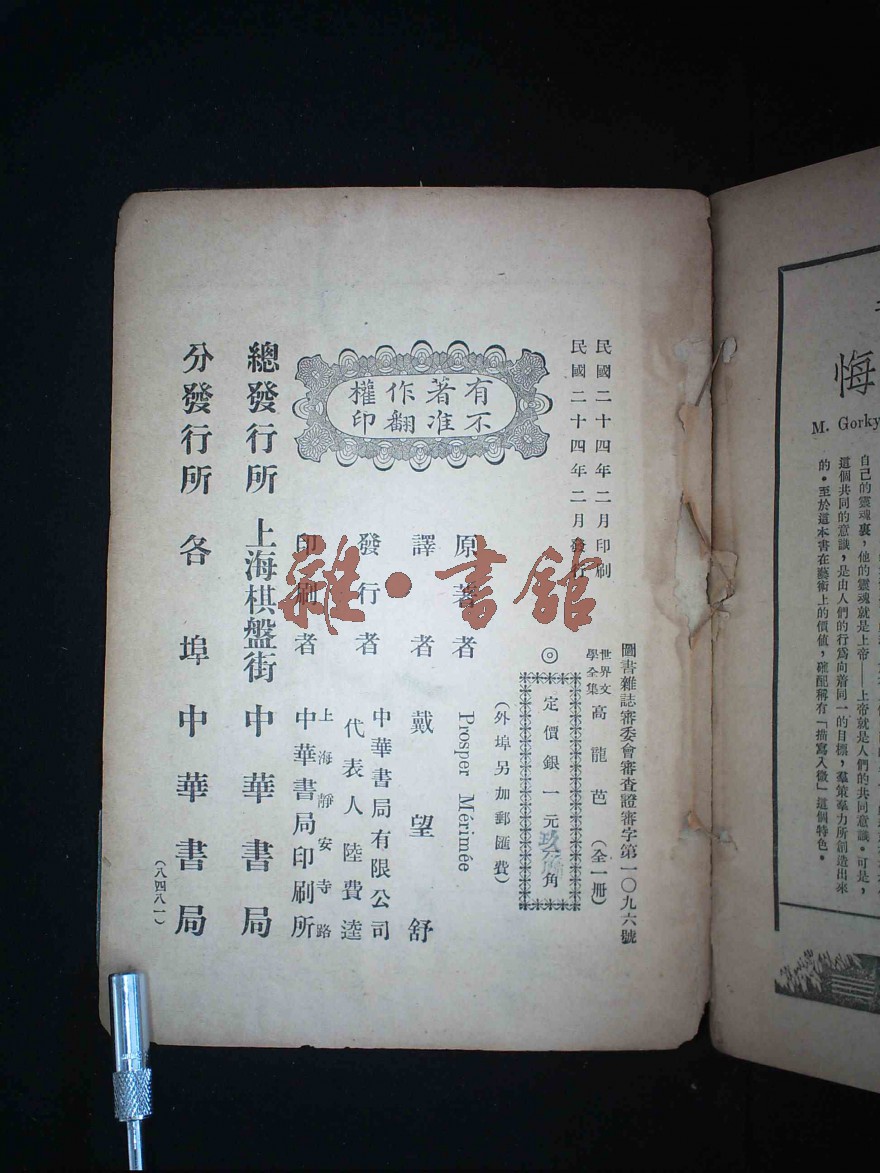 民國二十四年二月印刷
民國二十四年二月發行
圖書雜誌審委會審查證審字第一〇九六號
世界文學全集 高龍芭(全一册)
◎定價銀一元玖角
(外埠另加郵匯費)
有著作權
不准翻印
原著者 Prosper Mérimée
譯者 戴望舒
發行者 中華書局有限公司
代表人 陸費逵
印刷者 上海靜安寺路
中華書局印刷所
總發行所 上海棋盤街 中華書局
分發行所 各埠 中華書局
(八四八一)
雜·書館
悔
M. Gorky
自己的靈魂裏,他的靈魂就是上帝——上帝就是人們的共同意識。可是,
這個共同的意識,是由人們的行爲向着同一的目標,羣策羣力所創造出來
的。至於這本書在藝術上的價值,確配稱有「描寫入微」這個特色。